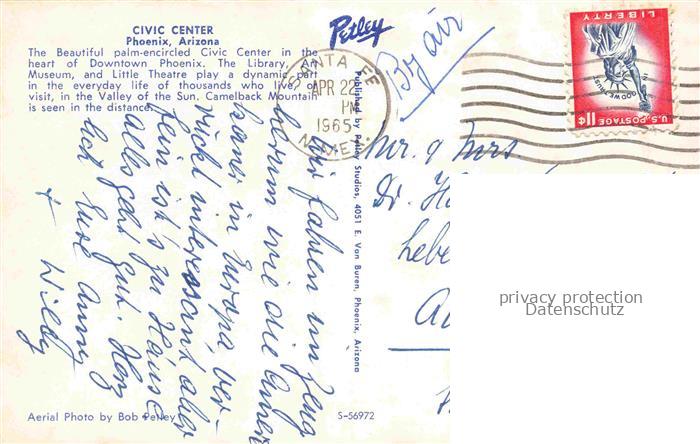 CIVIC CENTER
Phoenix, Arizona
The Beautiful palm-encircled Civic Center in the
heart of Downtown Phoenix. The Library, Art
Museum, and Little Theatre play a dynamic part
in the everyday life of thousands who live, or
visit, in the Valley of the Sun. Camelback Mountain
is seen in the distance.
Petley
By air
SANTA FE
APR 22
PM
1965
N. MEX.
LIBERTY
IN GOD WE TRUST
U.S. POSTAGE 11¢
Wir fahren im
herum wie die
in Europa, ver-
rückt interessant aber
fein ist's zu Hause
alles geht gut. Herz
lichst Eure Anny
+ Willy
Published by Petley Studios, 4051 E. Van Buren, Phoenix, Arizona
Mr. & Mrs
Dr.
privacy protection
Datenschutz
Aerial Photo by Bob Petley
S-56972